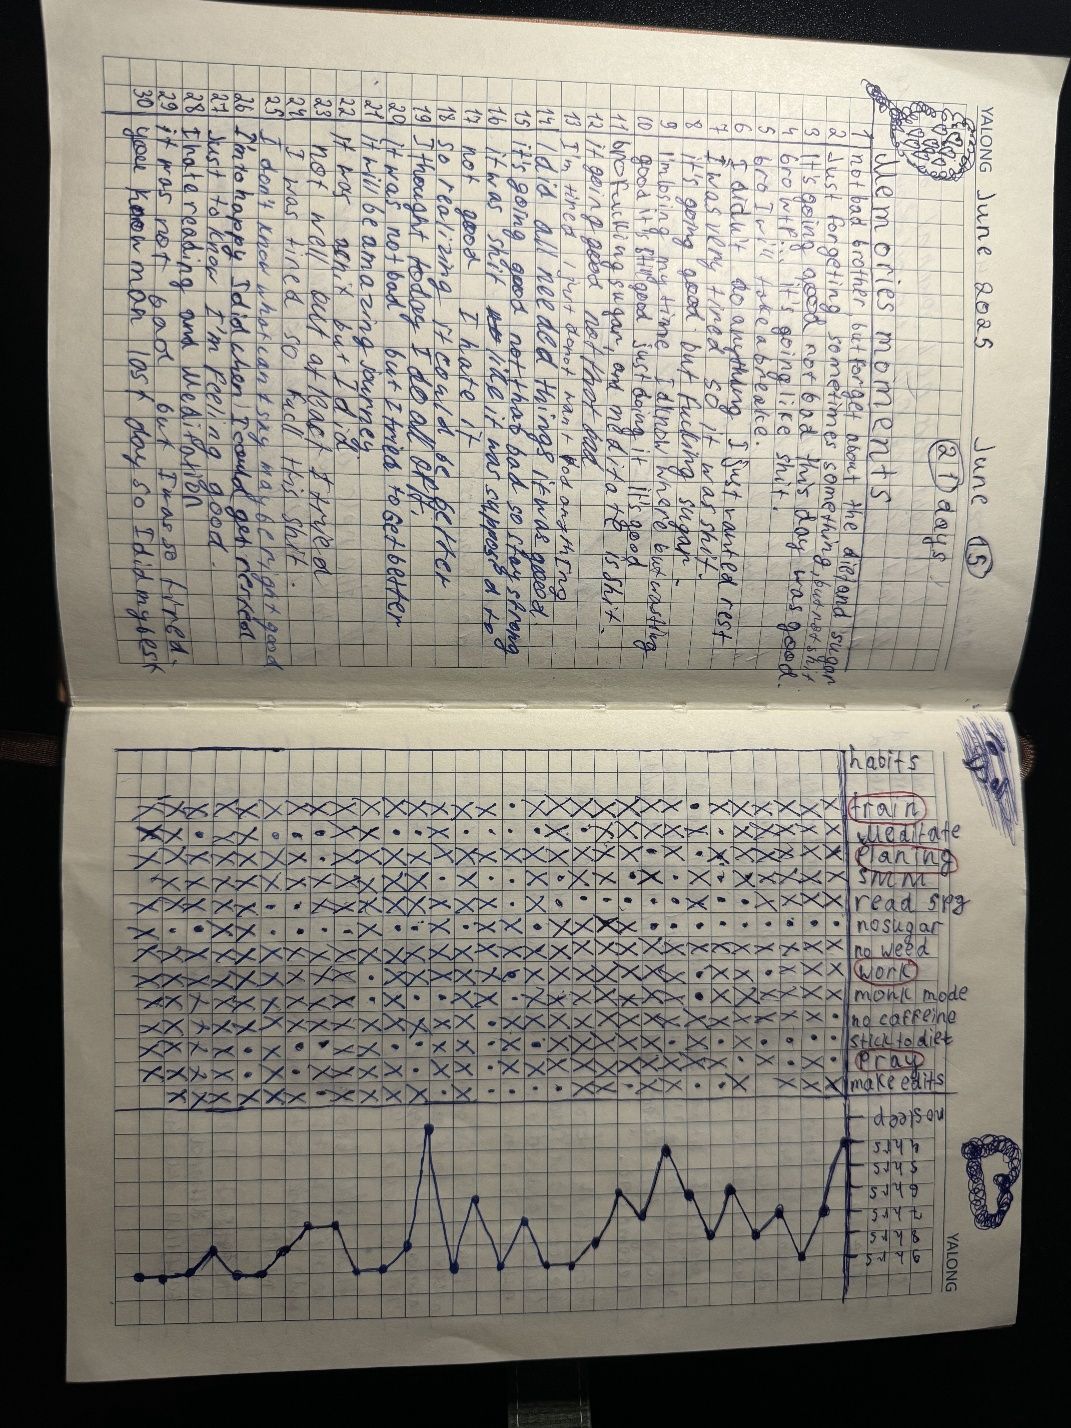 YALONG June 2025 June 15
21 days
Memories moments
1 not bad brother but forget about the diet and sugar
2 Just forgeting sometimes something, but not shit
3 It's going good not bad this day was good.
4 bro wtf!! it's going like shit.
5 bro I will take a breake.
6 I didn't do anything I just wanted rest
7 I was very tired so it was shit.
8 it's going good but fucking sugar
9 I'm losing my time I know where but wasting
10 good it's still good just doing it it's good
11 bro fucking sugar, and meditate is shit.
12 it going good not that bad
13 I'm tired I just do not want do anything
14 I did all needed things it was good
15 it's going good not that bad so stay strong
16 it was shit like it was supposed to
17 not good I hate it
18 so realizing it could be better
19 I thought today I do all of it.
20 it was not bad but I tried to get better
21 it will be amazing journey
22 it was but I did
23 not well but at least I tried
24 I was tired so full this shit.
25 I don't know what can I say maybe right good
26 I'm to happy I did when I could get rerked
27 just to know I'm feeling good.
28 I hate reading and meditation
29 it was not bad but I was so tired.
30 you know man last day so I did my best
habits
train
Meditate
Planing
SMM
read 5pg
no sugar
no weed
work
monk mode
no caffeine
stick to diet
Pray
make edits
no sleep
4 hrs
5 hrs
6 hrs
7 hrs
8 hrs
9 hrs
YALONG